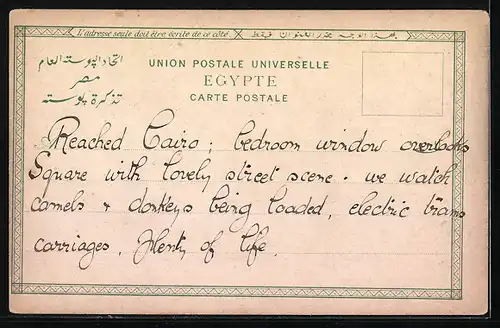 L'adresse seule doit être écrite de ce côté. بهذا الوجه يحرر العنوان فقط
اتحاد البوسته العام
مصر
تذكرة بوسته
UNION POSTALE UNIVERSELLE
EGYPTE
CARTE POSTALE
Reached Cairo; bedroom window overlooks
Square with lovely street scene. we watch
camels & donkeys being loaded, electric trams
carriages. Plenty of life.